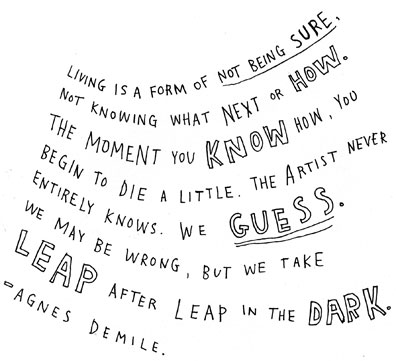 LIVING IS A FORM OF NOT BEING SURE,
NOT KNOWING WHAT NEXT OR HOW.
THE MOMENT YOU KNOW HOW, YOU
BEGIN TO DIE A LITTLE. THE ARTIST NEVER
ENTIRELY KNOWS. WE GUESS.
WE MAY BE WRONG, BUT WE TAKE
LEAP AFTER LEAP IN THE DARK.
-AGNES DEMILE.